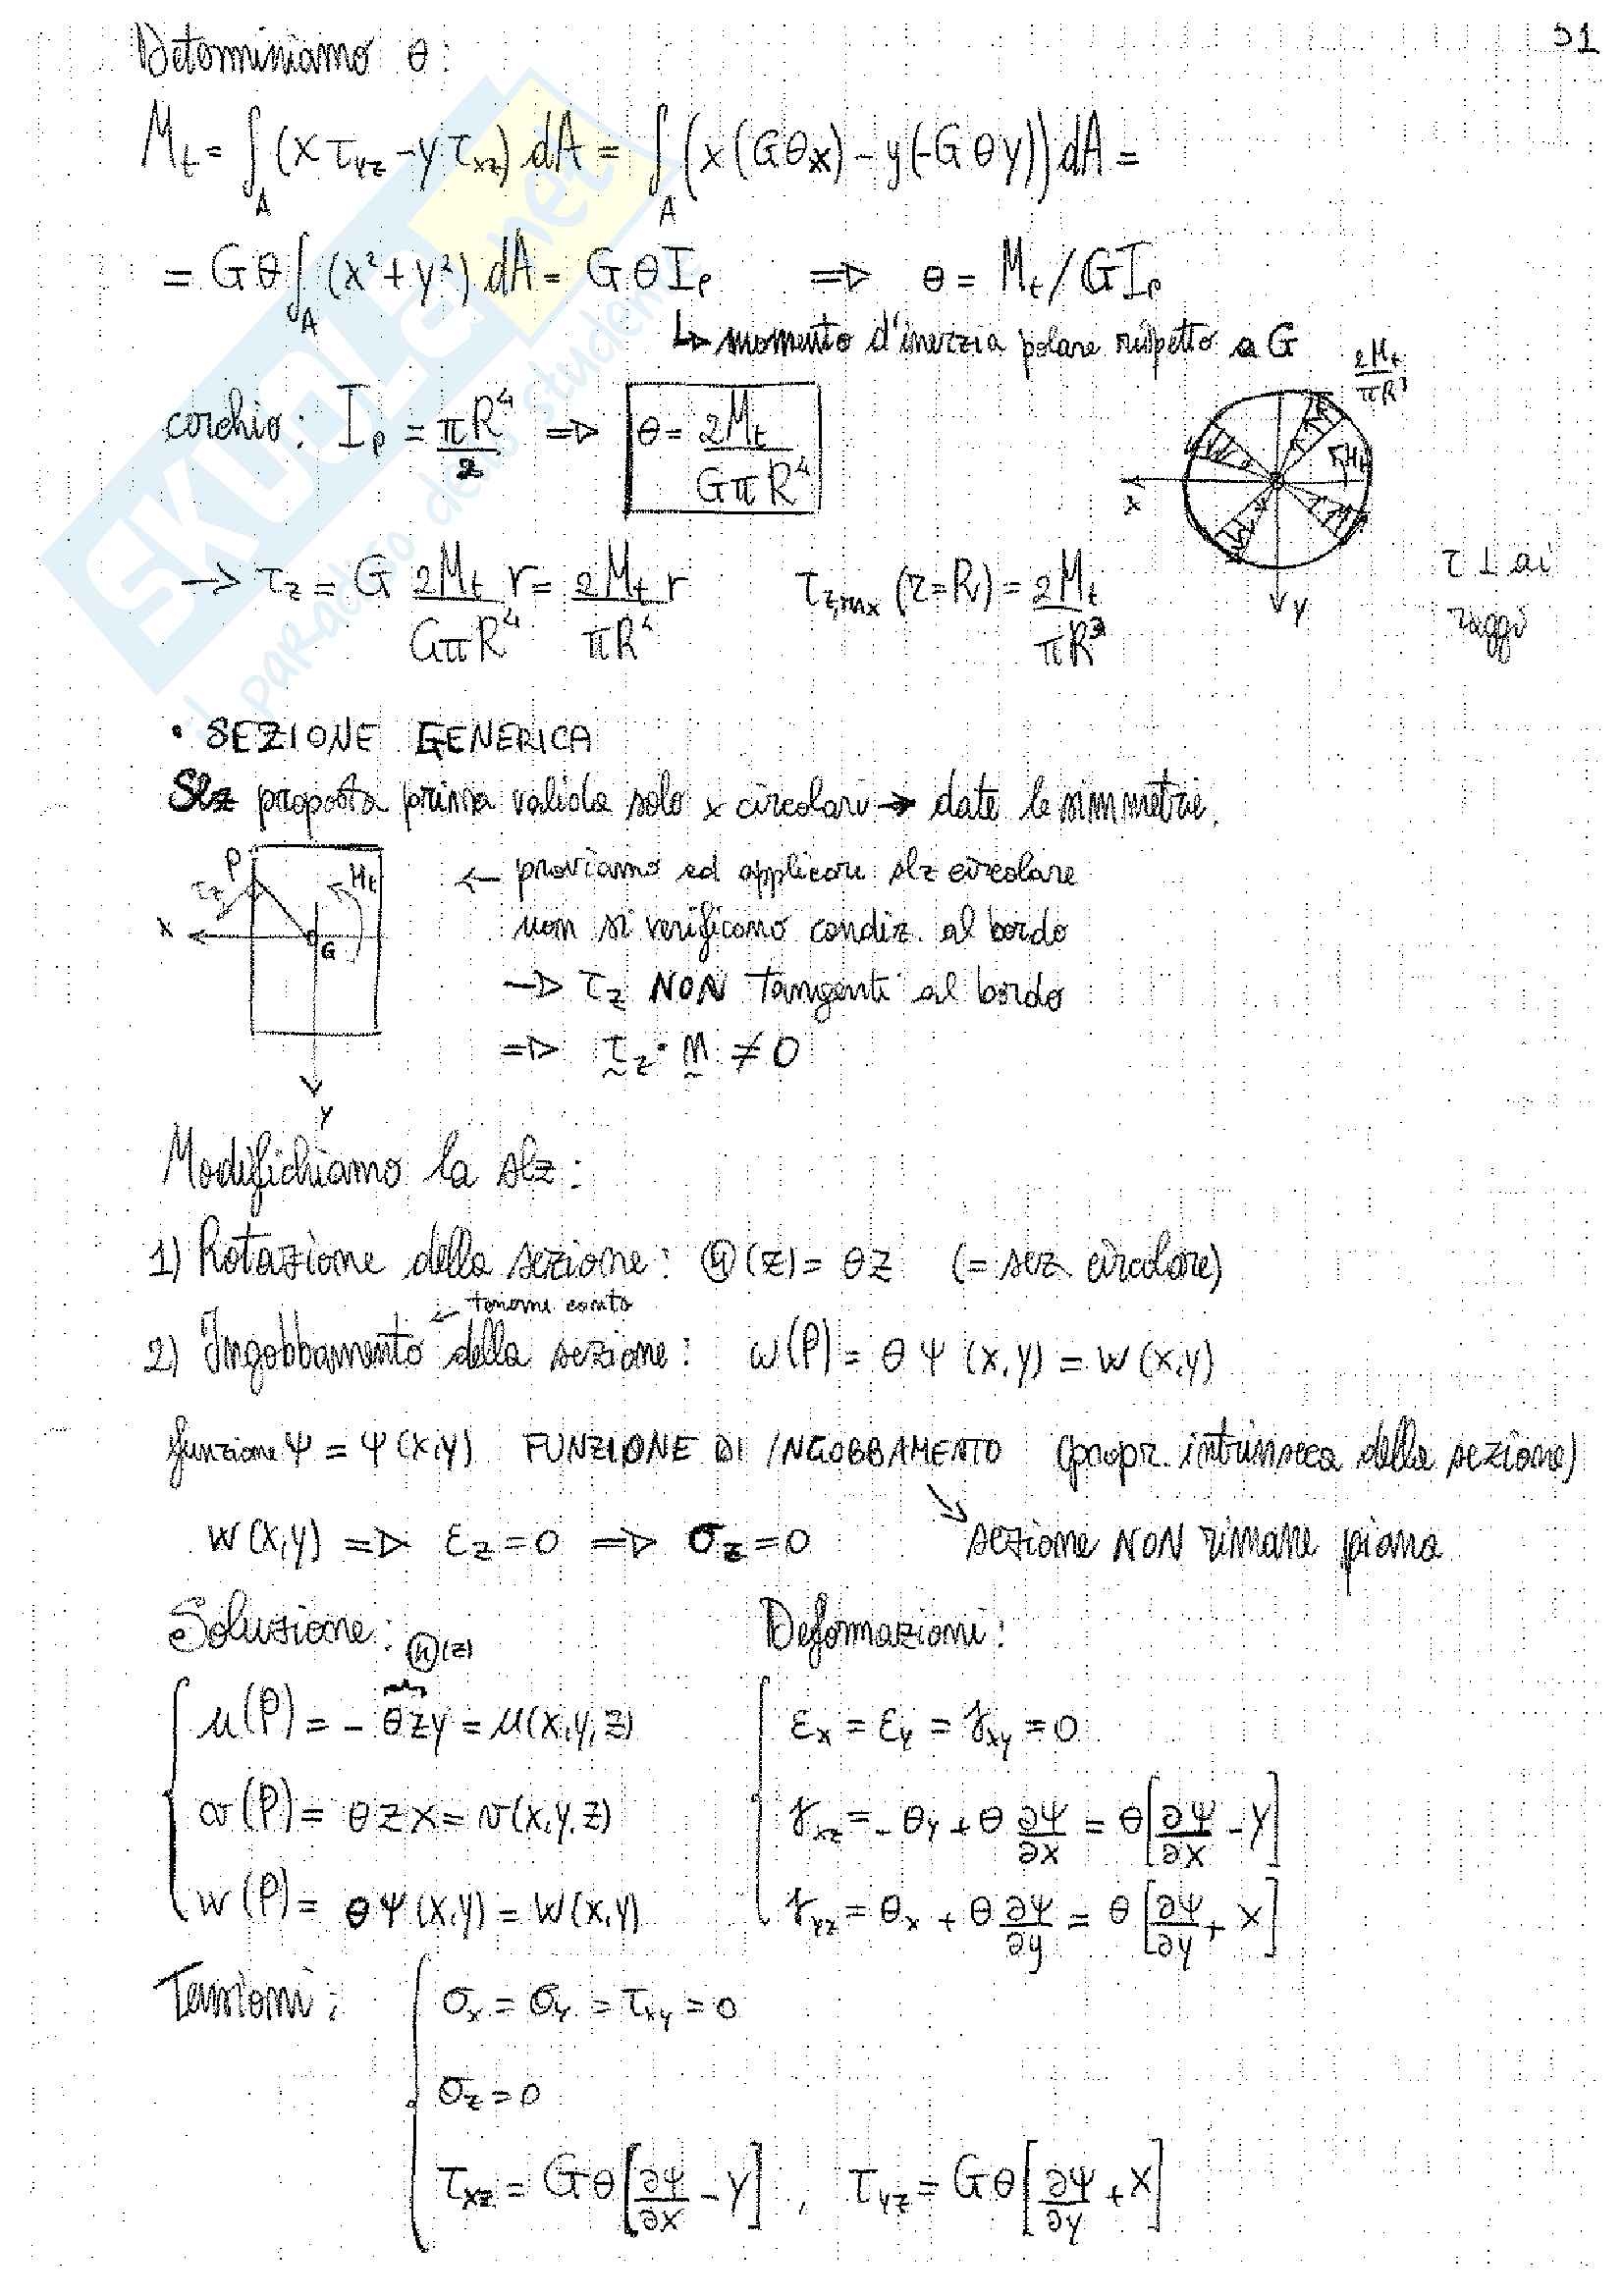 51
Determiniamo θ:
M_t = ∫_A (x τ_yz - y τ_xz) dA = ∫_A (x (Gθx) - y(-Gθy)) dA =
= Gθ ∫_A (x² + y²) dA = GθI_p ⇒ θ = M_t / GI_p
↳ momento d'inerzia polare rispetto a G
cerchio: I_p = πR⁴/2 ⇒ θ = 2M_t / GπR⁴
2M_t / πR³
M_t
x
y
→ τ_z = G 2M_t / GπR⁴ r = 2M_t / πR⁴ r τ_z,max (r=R) = 2M_t / πR³
τ ⊥ ai
raggi
• SEZIONE GENERICA
Slz proposta prima valida solo x circolari → date le simmetrie.
P
τ_z
M_t
x
G
y
← proviamo ad applicare slz circolare
non si verificano condiz. al bordo
→ τ_z NON tangenti al bordo
⇒ τ_z · n ≠ 0
Modifichiamo la slz:
1) Rotazione della sezione: Θ(z) = θz (= sez. circolare)
← tenerne conto
2) Ingobbamento della sezione: w(P) = θ Ψ (x,y) = w (x,y)
funzione Ψ = Ψ(x,y) FUNZIONE DI INGOBBAMENTO (propr. intrinseca della sezione)
w(x,y) ⇒ ε_z = 0 ⇒ σ_z = 0 ↘ sezione NON rimane piana
Soluzione: Deformazioni:
Θ(z)
u(P) = - θzy = u(x,y,z) ε_x = ε_y = γ_xy = 0
v(P) = θzx = v(x,y,z) γ_xz = - θy + θ ∂Ψ/∂x = θ[∂Ψ/∂x - y]
w(P) = θΨ(x,y) = w(x,y) γ_yz = θx + θ ∂Ψ/∂y = θ[∂Ψ/∂y + x]
Tensioni: σ_x = σ_y = τ_xy = 0
σ_z = 0
τ_xz = Gθ[∂Ψ/∂x - y] , τ_yz = Gθ[∂Ψ/∂y + x]